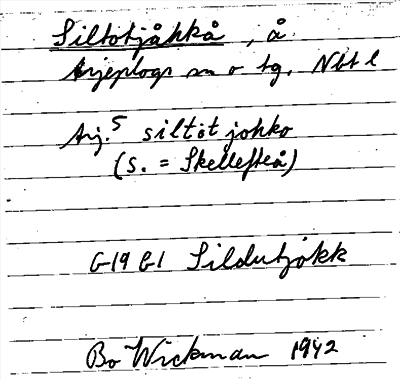 Siltotjåhkå, å
Arjeplogs sn o tg. Nbt l
Arj.⁵ siltöt johko
(S. = Skellefteå)
G19 G1 Sildutjokk
Bo Wickman 1942